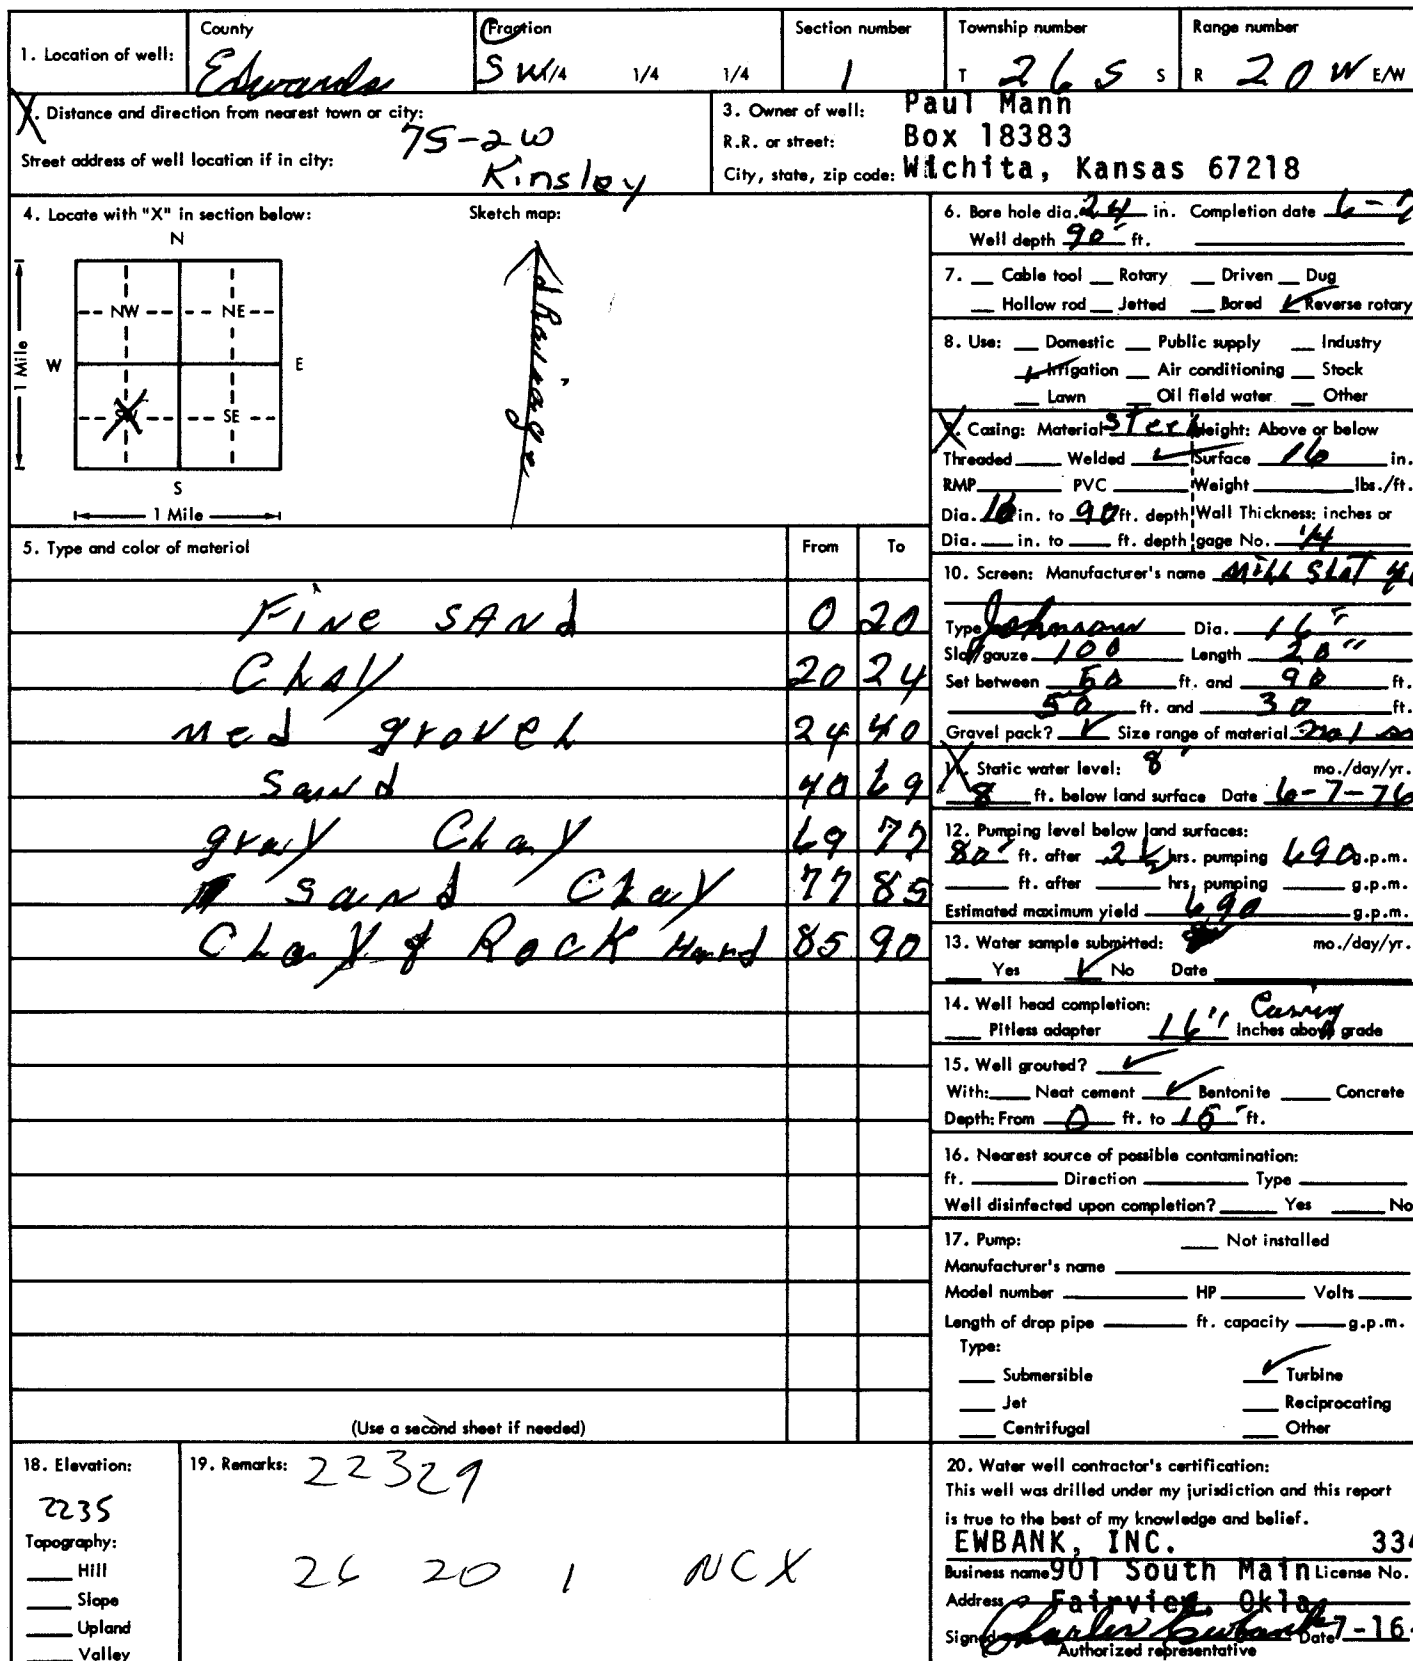 1. Location of well:
County
Edwards
Fraction
SW 1/4 1/4 1/4
Section number
1
Township number
T 26 S S
Range number
R 20 W E/W
X. Distance and direction from nearest town or city:
7S-2W
Street address of well location if in city:
Kinsley
3. Owner of well: Paul Mann
R.R. or street: Box 18383
City, state, zip code: Wichita, Kansas 67218
4. Locate with "X" in section below:
Sketch map:
N
NW NE
W E
SW SE
S
1 Mile
1 Mile
drainage
6. Bore hole dia. 24 in. Completion date 6-7
Well depth 90' ft.
7. Cable tool Rotary Driven Dug
Hollow rod Jetted Bored ✓ Reverse rotary
8. Use: Domestic Public supply Industry
✓ Irrigation Air conditioning Stock
Lawn Oil field water Other
9. Casing: Material Steel Height: Above or below
Threaded Welded ✓ Surface 16 in.
RMP PVC Weight lbs./ft.
Dia. 16 in. to 90 ft. depth Wall Thickness: inches or
Dia. in. to ft. depth gage No. 1/4
5. Type and color of material From To
Fine sand 0 20
Clay 20 24
med gravel 24 40
Sand 40 69
gray Clay 69 77
sand Clay 77 85
Clay & Rock Hard 85 90
(Use a second sheet if needed)
10. Screen: Manufacturer's name Mill Slot
Type Johnson Dia. 16"
Slot/gauze 100 Length 20"
Set between ft. and 90 ft.
50 ft. and 30 ft.
Gravel pack? ✓ Size range of material
11. Static water level: 8' mo./day/yr.
8 ft. below land surface Date 6-7-76
12. Pumping level below land surfaces:
80' ft. after hrs. pumping 690 g.p.m.
ft. after hrs. pumping g.p.m.
Estimated maximum yield 690 g.p.m.
13. Water sample submitted: mo./day/yr.
Yes ✓ No Date
14. Well head completion: Casing
Pitless adapter 16" Inches above grade
15. Well grouted? ✓
With: Neat cement ✓ Bentonite Concrete
Depth: From 0 ft. to 15' ft.
16. Nearest source of possible contamination:
ft. Direction Type
Well disinfected upon completion? Yes No
17. Pump: Not installed
Manufacturer's name
Model number HP Volts
Length of drop pipe ft. capacity g.p.m.
Type:
Submersible ✓ Turbine
Jet Reciprocating
Centrifugal Other
18. Elevation:
2235
Topography:
Hill
Slope
Upland
Valley
19. Remarks: 22329
26 20 1 NCX
20. Water well contractor's certification:
This well was drilled under my jurisdiction and this report
is true to the best of my knowledge and belief.
EWBANK, INC. 334
Business name 901 South Main License No.
Address Fairview, Okla
Signed Charles Ewbank Date 7-16-
Authorized representative